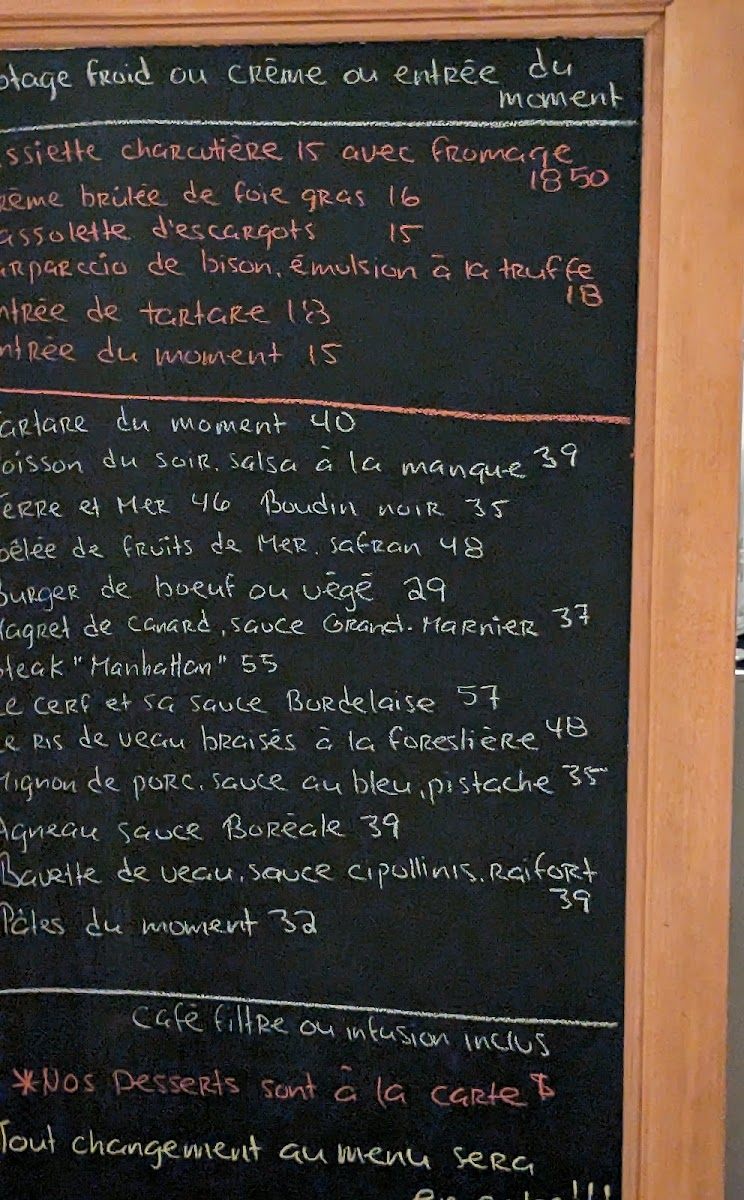 otage froid ou crème ou entrée du
moment
ssiette charcutière 15 avec fromage
18 50
rème brûlée de foie gras 16
assolette d'escargots 15
arparccio de bison, émulsion à la truffe
18
ntrée de tartare 18
ntrée du moment 15
artare du moment 40
oisson du soir, salsa à la mangue 39
Terre et Mer 46 Boudin noir 35
oêlée de fruits de Mer, safran 48
Burger de boeuf ou végé 29
Magret de canard, sauce Grand-Marnier 37
steak "Manhattan" 55
Le cerf et sa sauce Bordelaise 57
Le Ris de veau braisés à la forestière 48
Mignon de porc, sauce au bleu, pistache 35
Agneau sauce Boréale 39
Bavette de veau, sauce cipollinis, Raifort
39
Pâtes du moment 32
café filtre ou infusion inclus
*Nos Desserts sont à la carte $
Tout changement au menu sera